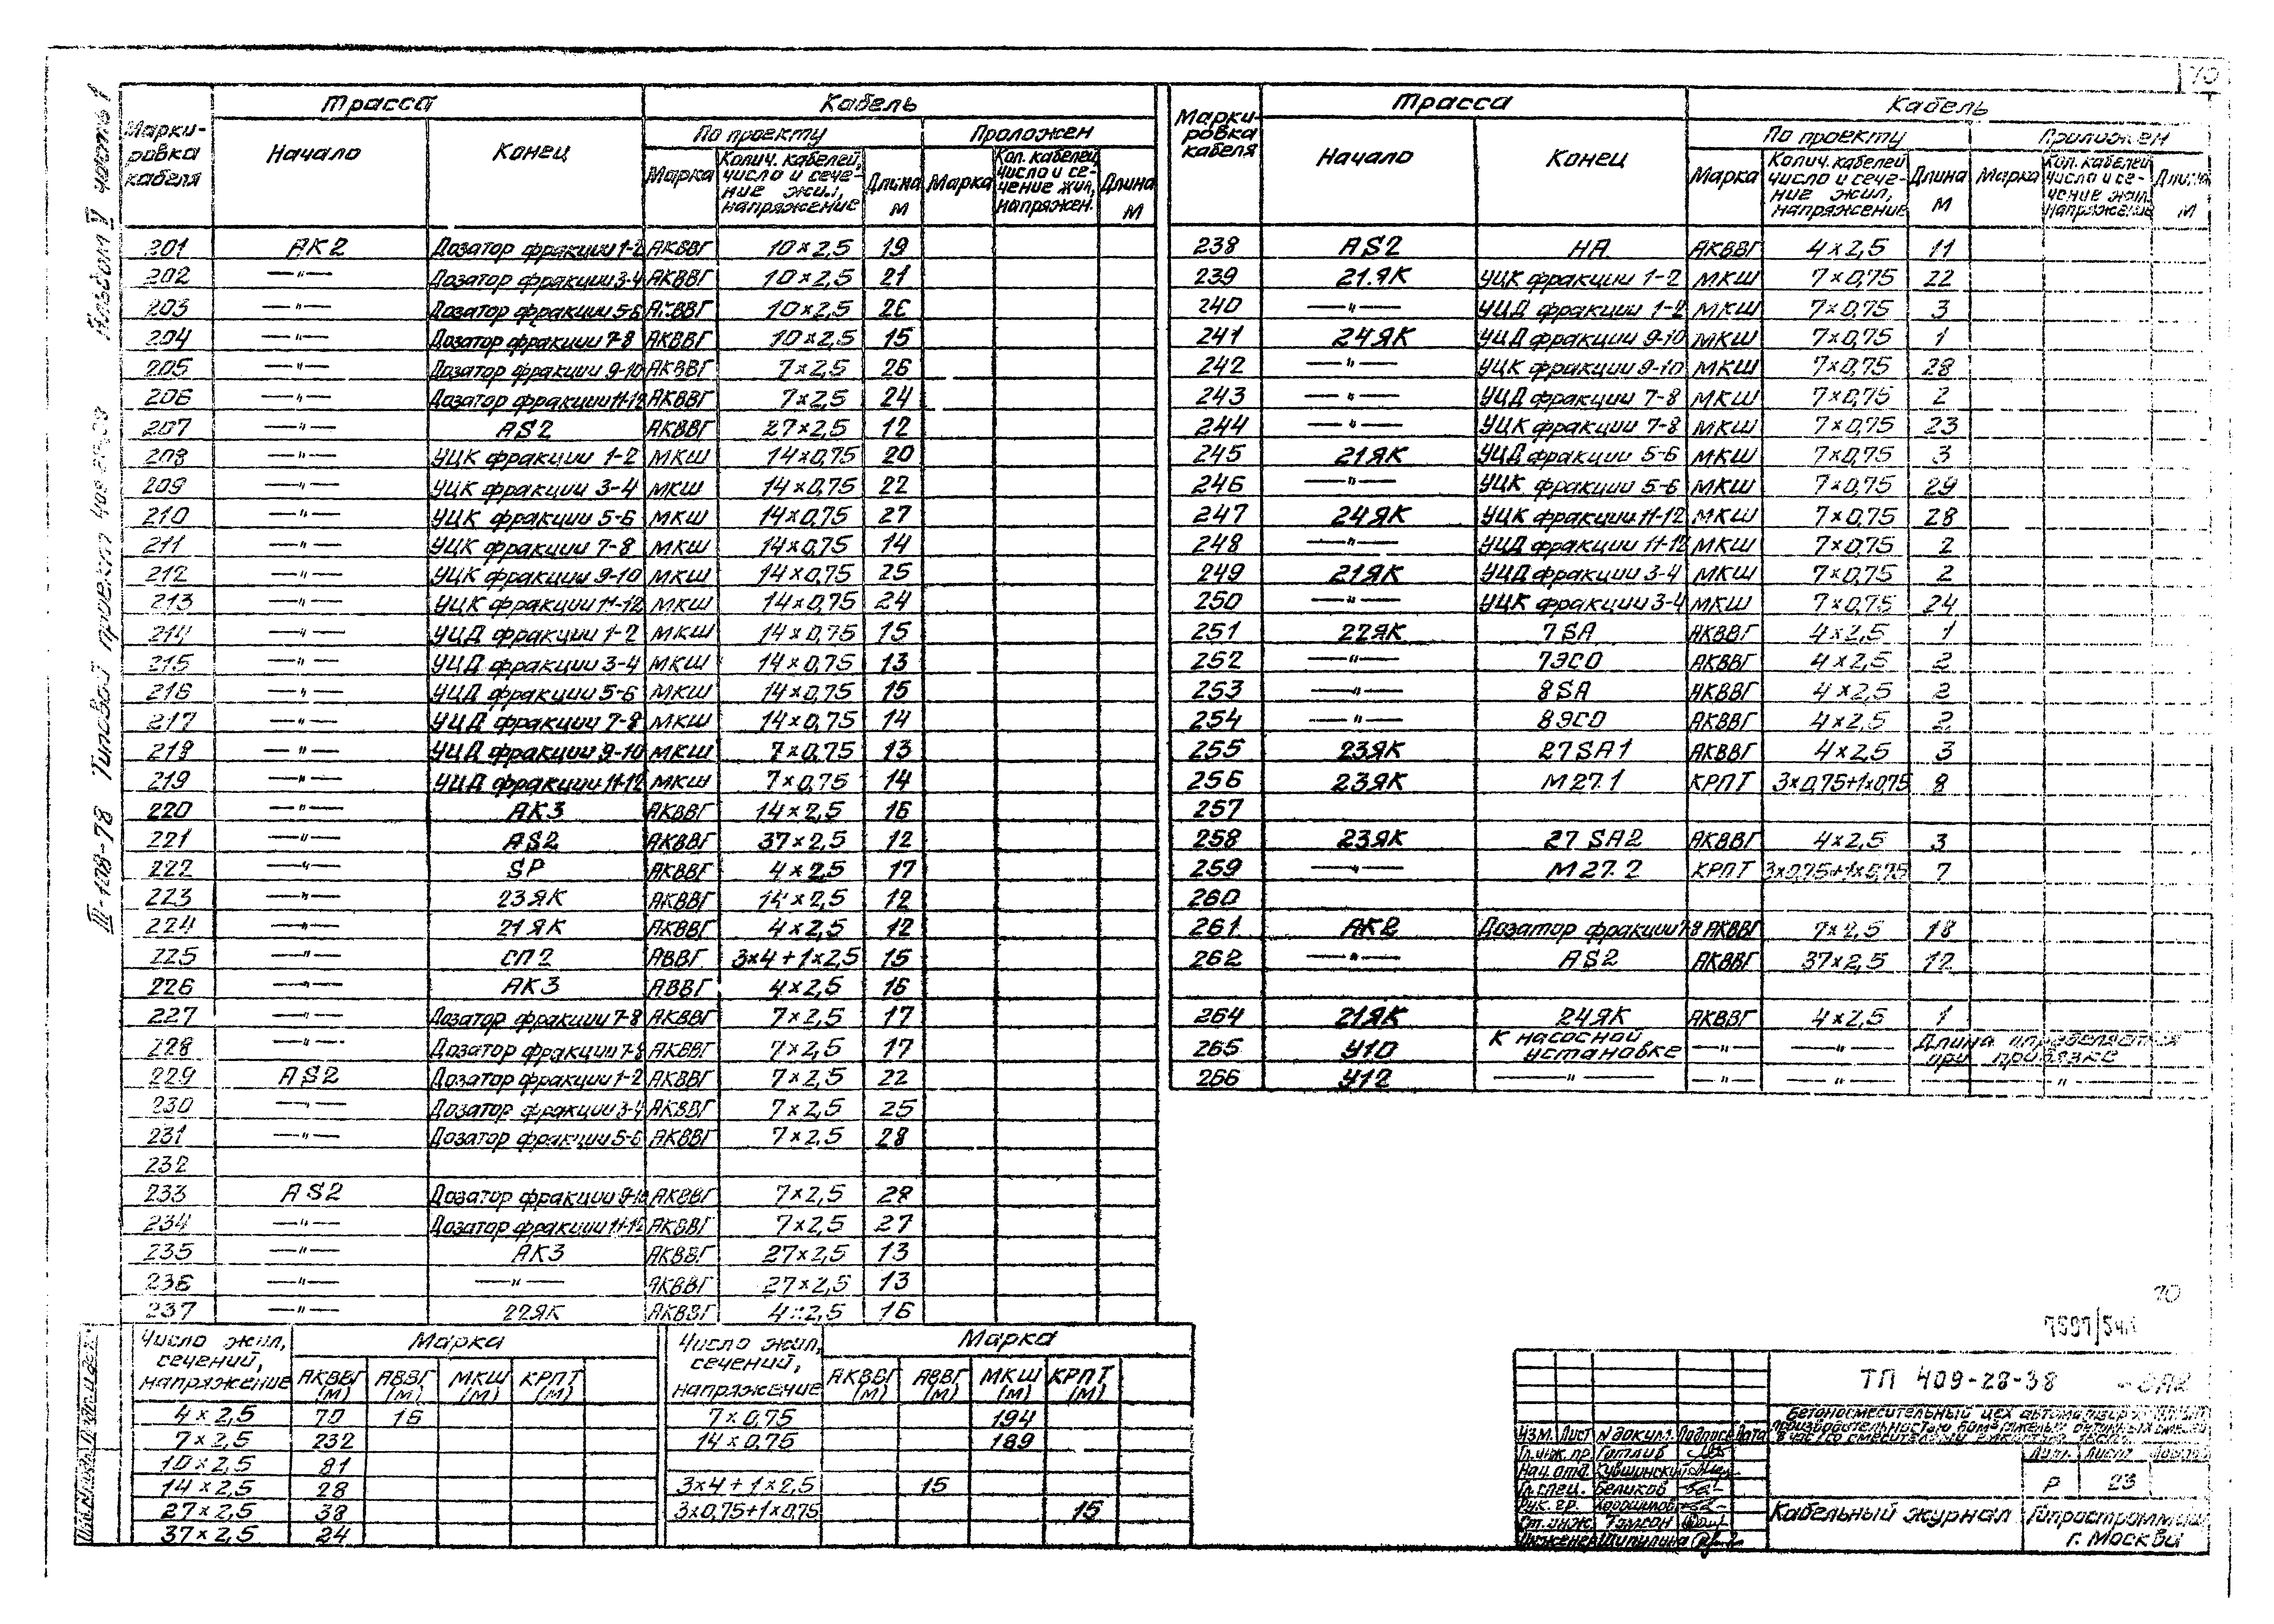 70
III-108-78 Типовой проект 409-28-38 Альбом V часть 1
Марки-ровка кабеля | Трасса | Кабель
Начало | Конец | По проекту | Проложен
Марка | Колич. кабелей, число и сече-ние жил, напряжение | Длина м | Марка | Кол. кабелей, число и се-чение жил, напряжен. | Длина м
201 АК2 Дозатор фракции 1-2 АКВВГ 10×2,5 19
202 —"— Дозатор фракции 3-4 АКВВГ 10×2,5 21
203 —"— Дозатор фракции 5-6 АКВВГ 10×2,5 26
204 —"— Дозатор фракции 7-8 АКВВГ 10×2,5 15
205 —"— Дозатор фракции 9-10 АКВВГ 7×2,5 26
206 —"— Дозатор фракции 11-12 АКВВГ 7×2,5 24
207 —"— AS2 АКВВГ 27×2,5 12
208 —"— УЦК фракции 1-2 МКШ 14×0,75 20
209 —"— УЦК фракции 3-4 МКШ 14×0,75 22
210 —"— УЦК фракции 5-6 МКШ 14×0,75 27
211 —"— УЦК фракции 7-8 МКШ 14×0,75 14
212 —"— УЦК фракции 9-10 МКШ 14×0,75 25
213 —"— УЦК фракции 11-12 МКШ 14×0,75 24
214 —"— УЦД фракции 1-2 МКШ 14×0,75 15
215 —"— УЦД фракции 3-4 МКШ 14×0,75 13
216 —"— УЦД фракции 5-6 МКШ 14×0,75 15
217 —"— УЦД фракции 7-8 МКШ 14×0,75 14
218 —"— УЦД фракции 9-10 МКШ 7×0,75 13
219 —"— УЦД фракции 11-12 МКШ 7×0,75 14
220 —"— АК3 АКВВГ 14×2,5 16
221 —"— AS2 АКВВГ 37×2,5 12
222 —"— SP АКВВГ 4×2,5 17
223 —"— 23ЯК АКВВГ 14×2,5 12
224 —"— 21ЯК АКВВГ 4×2,5 12
225 —"— СП2 АВВГ 3×4+1×2,5 15
226 —"— АК3 АВВГ 4×2,5 16
227 —"— Дозатор фракции 7-8 АКВВГ 7×2,5 17
228 —"— Дозатор фракции 7-8 АКВВГ 7×2,5 17
229 AS2 Дозатор фракции 1-2 АКВВГ 7×2,5 22
230 —"— Дозатор фракции 3-4 АКВВГ 7×2,5 25
231 —"— Дозатор фракции 5-6 АКВВГ 7×2,5 28
232
233 AS2 Дозатор фракции 9-10 АКВВГ 7×2,5 28
234 —"— Дозатор фракции 11-12 АКВВГ 7×2,5 27
235 —"— АК3 АКВВГ 27×2,5 13
236 —"— —"— АКВВГ 27×2,5 13
237 —"— 22ЯК АКВВГ 4×2,5 16
Марки-ровка кабеля | Трасса | Кабель
Начало | Конец | По проекту | Проложен
Марка | Колич. кабелей число и сече-ние жил, напряжение | Длина м | Марка | Кол. кабелей число и се-чение жил. напряжение | Длина м
238 AS2 НА АКВВГ 4×2,5 11
239 21ЯК УЦК фракции 1-2 МКШ 7×0,75 22
240 —"— УЦД фракции 1-2 МКШ 7×0,75 3
241 24ЯК УЦД фракции 9-10 МКШ 7×0,75 1
242 —"— УЦК фракции 9-10 МКШ 7×0,75 28
243 —"— УЦД фракции 7-8 МКШ 7×0,75 2
244 —"— УЦК фракции 7-8 МКШ 7×0,75 23
245 21ЯК УЦД фракции 5-6 МКШ 7×0,75 3
246 —"— УЦК фракции 5-6 МКШ 7×0,75 29
247 24ЯК УЦК фракции 11-12 МКШ 7×0,75 28
248 —"— УЦД фракции 11-12 МКШ 7×0,75 2
249 21ЯК УЦД фракции 3-4 МКШ 7×0,75 2
250 —"— УЦК фракции 3-4 МКШ 7×0,75 24
251 22ЯК 7SA АКВВГ 4×2,5 1
252 —"— 7ЭСО АКВВГ 4×2,5 2
253 —"— 8SA АКВВГ 4×2,5 2
254 —"— 8ЭСО АКВВГ 4×2,5 2
255 23ЯК 27SA1 АКВВГ 4×2,5 3
256 23ЯК М27.1 КРПТ 3×0,75+1×0,75 8
257
258 23ЯК 27SA2 АКВВГ 4×2,5 3
259 —"— М27.2 КРПТ 3×0,75+1×0,75 7
260
261 АК2 Дозатор фракции 7-8 АКВВГ 7×2,5 18
262 —"— AS2 АКВВГ 37×2,5 12
264 21ЯК 24ЯК АКВВГ 4×2,5 1
265 У10 К насосной установке —"— —"— Длина определяется при привязке
266 У12 —"— —"— —"— —"—
Число жил, сечений, напряжение | Марка
АКВВГ (м) | АВВГ (м) | МКШ (м) | КРПТ (м)
4×2,5 70 16
7×2,5 232
10×2,5 81
14×2,5 28
27×2,5 38
37×2,5 24
Число жил, сечений, напряжение | Марка
АКВВГ (м) | АВВГ (м) | МКШ (м) | КРПТ (м)
7×0,75 194
14×0,75 189
3×4+1×2,5 15
3×0,75+1×0,75 15
70
ТП 409-28-38
Бетоносмесительный цех
Изм. Лист N докум. Подпись Дата
Гл.инж.пр. Готлиб
Нач.отд. Кувшинский
Гл.спец. Беликов
Рук. гр. Хорошилов
Ст.инж. Томсон
Инженер Шипулина
Лит. Лист Листов
Р 23
Кабельный журнал
Гипростроммаш
г. Москва